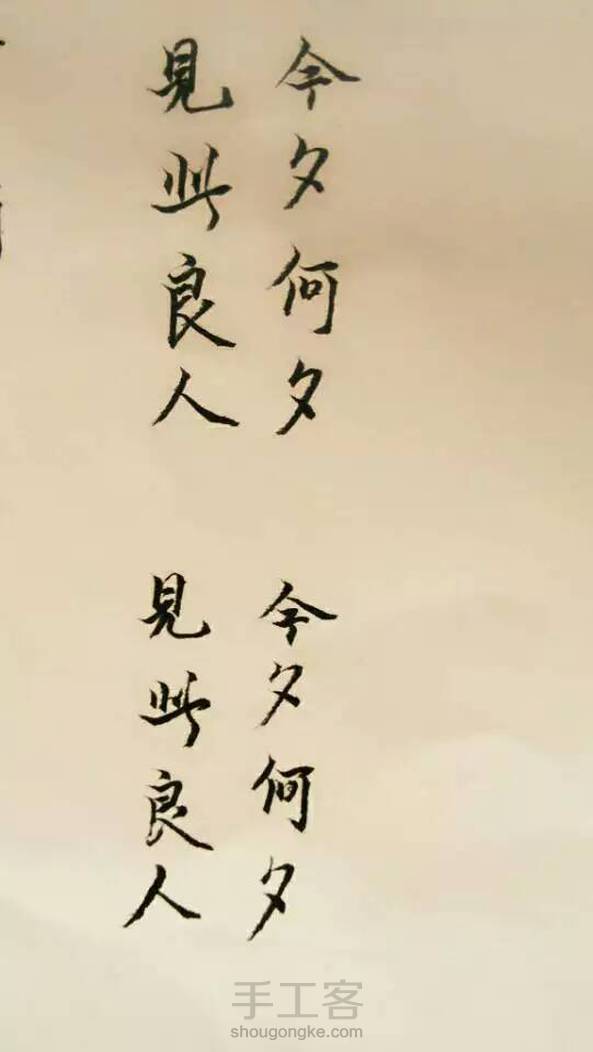 今夕何夕
見此良人
今夕何夕
見此良人
手工客
shougongke.com